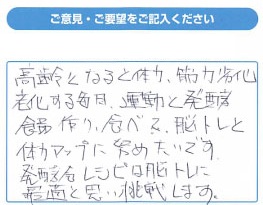 ご意見・ご要望をご記入ください
高齢となると体力、能力劣化
老化する毎日、運動と発酵
食品作り、食べて、脳トレと
体力アップに努めたいです。
発酵食レシピは脳トレに
最適と思い挑戦します。